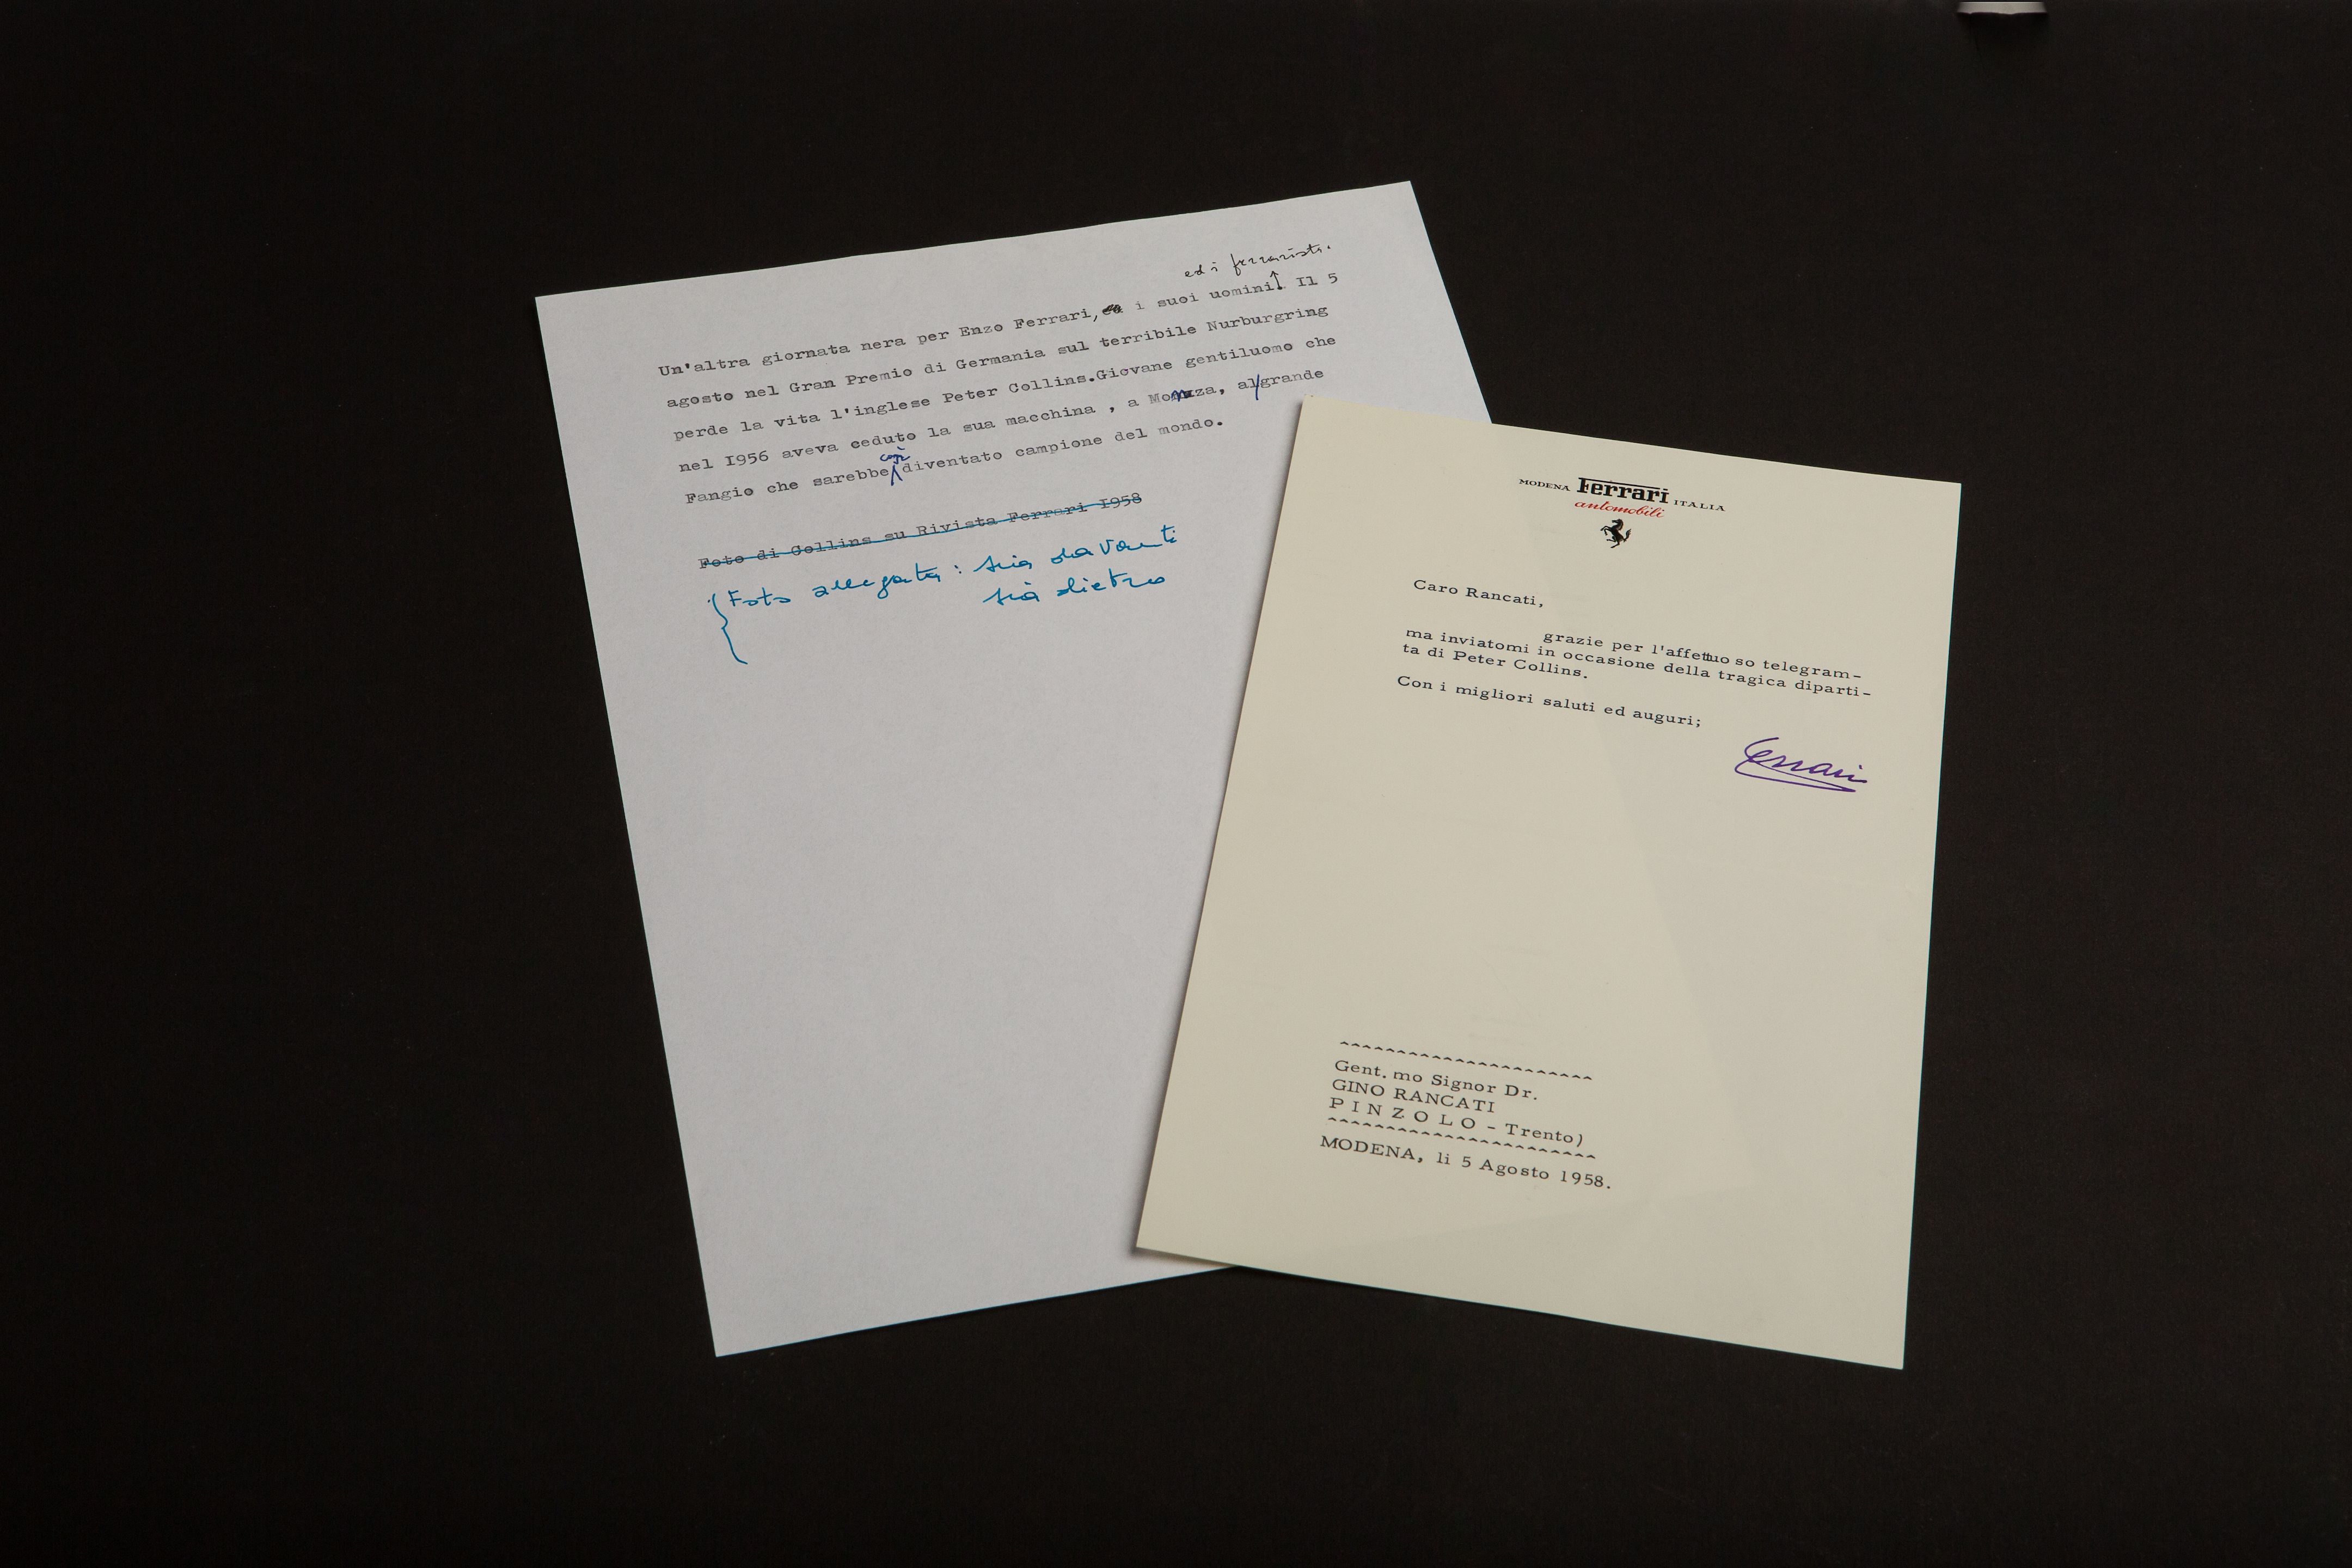 ed i ferraristi.
Un'altra giornata nera per Enzo Ferrari, i suoi uomini Il 5
agosto nel Gran Premio di Germania sul terribile Nurburgring
perde la vita l'inglese Peter Collins.Giovane gentiluomo che
nel I956 aveva ceduto la sua macchina , a Monza, al grande
così
Fangio che sarebbe diventato campione del mondo.
Foto di Collins su Rivista Ferrari I958
Foto allegata : sia davanti
sia dietro
MODENA Ferrari ITALIA
automobili
Caro Rancati,
grazie per l'affettuo so telegram-
ma inviatomi in occasione della tragica diparti-
ta di Peter Collins.
Con i migliori saluti ed auguri;
Ferrari
Gent. mo Signor Dr.
GINO RANCATI
P I N Z O L O - Trento)
MODENA, li 5 Agosto 1958.